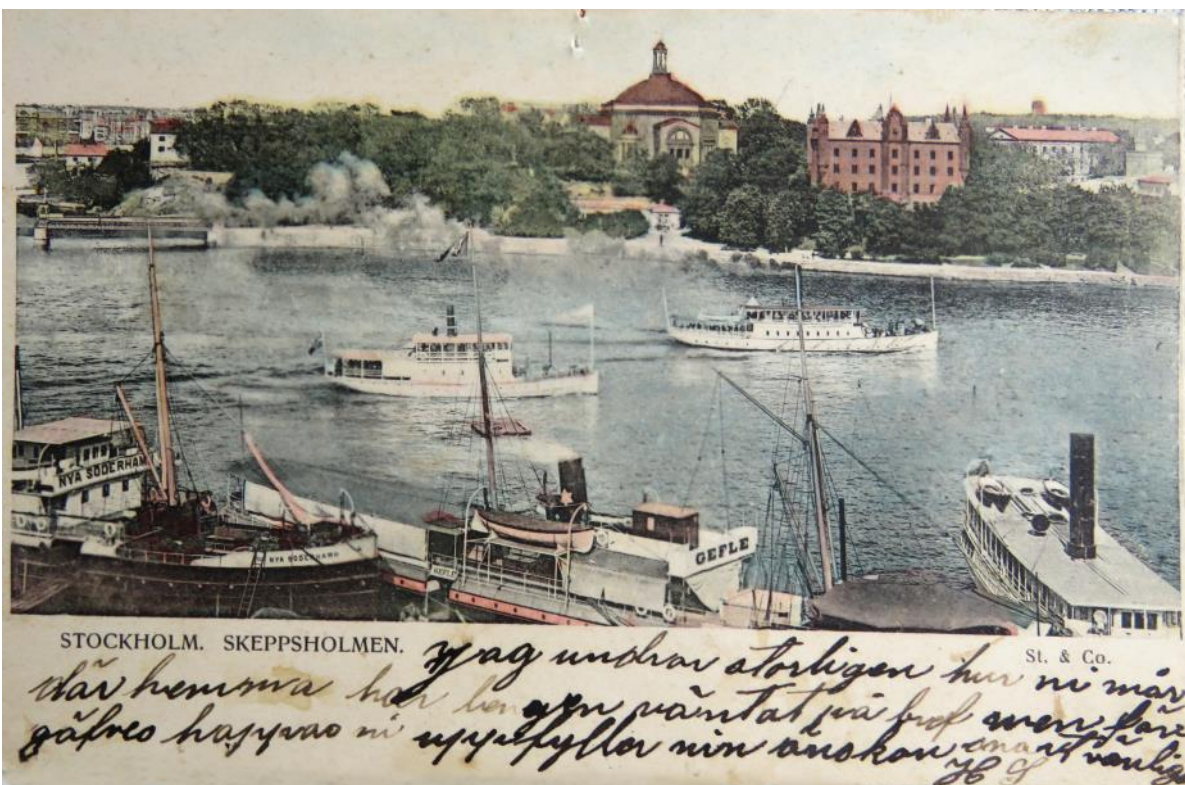 NYA SÖDERHAMN
NYA SÖDERHAMN
GEFLE
GEFLE
STOCKHOLM. SKEPPSHOLMEN.
St. & Co.
Jag undrar storligen hur ni mår
där hemma har len gen väntat på bref men för
gäfves happas ni uppfyller min önskan snart vänlig
H S